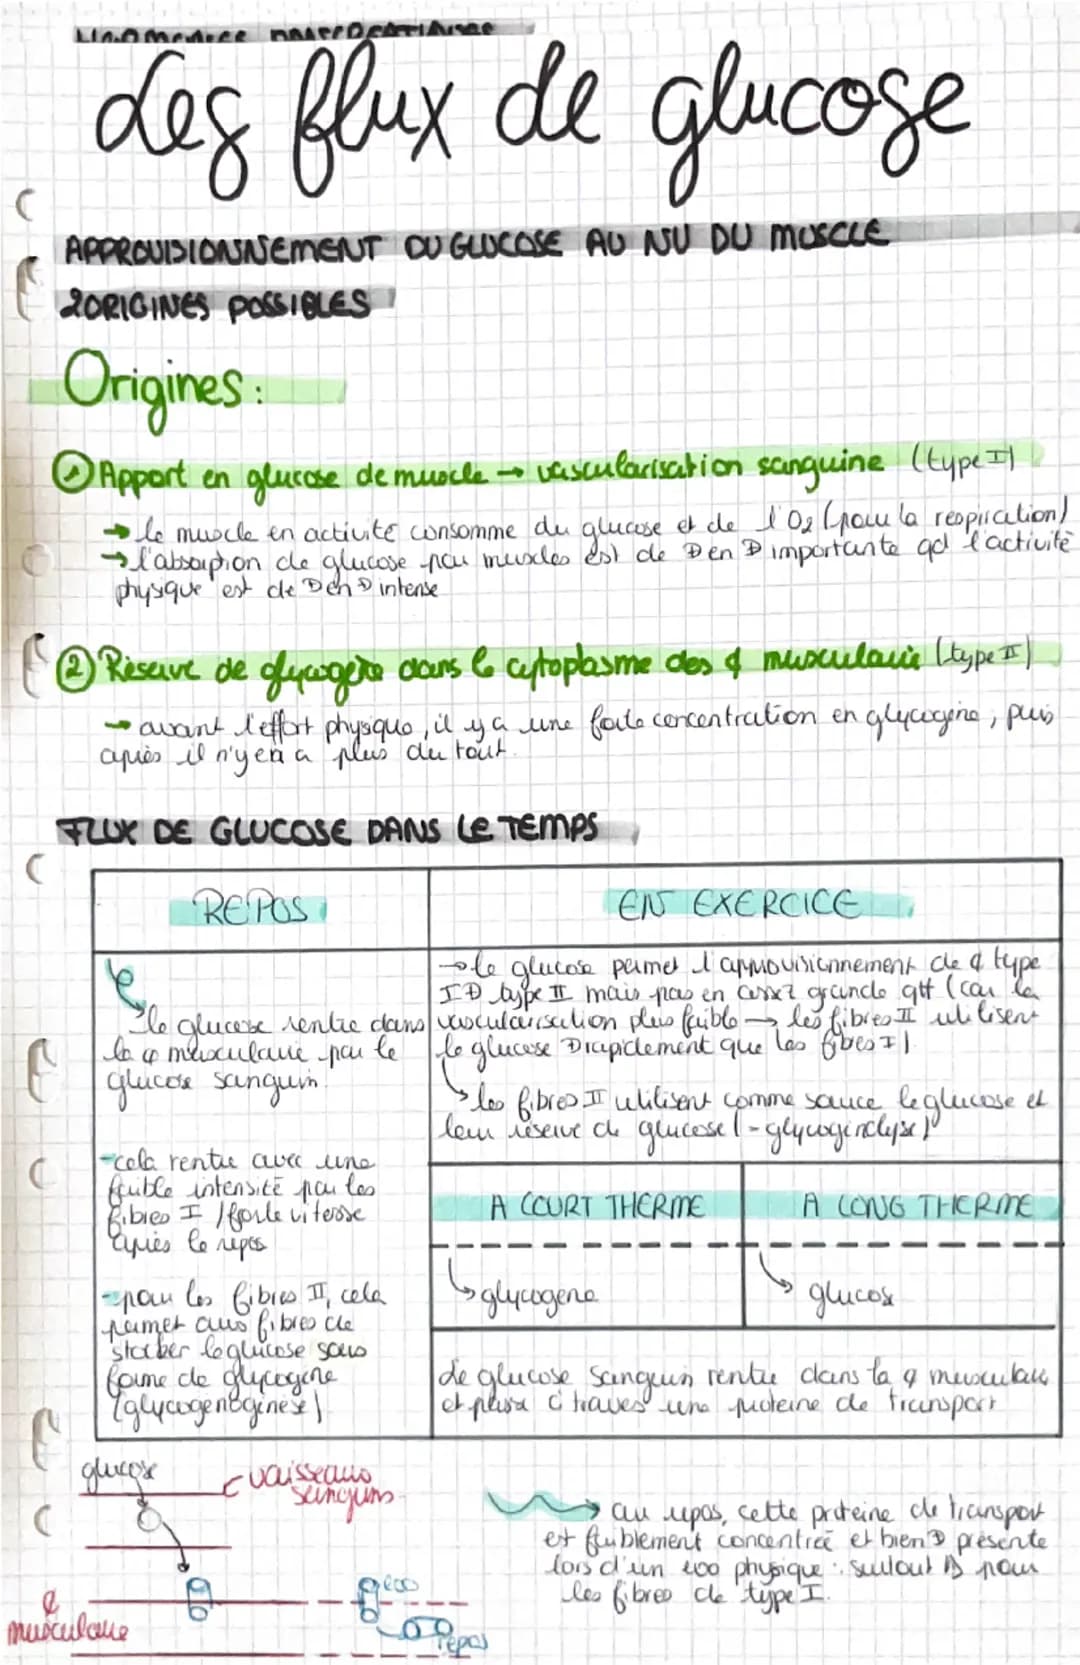 Les flux de glucose
APPROVISIONNEMENT DU GLUCOSE AU NU DU MUSCLE
2 ORIGINES POSSIBLES
Origines :
① Apport en glucose de muscle → vascularisation sanguine (type I)
→ le muscle en activité consomme du glucose et de l'O2 (pour la respiration)
→ l'absorption de glucose par muscles est de ⊕ en ⊕ importante qd l'activité
physique est de ⊕ en ⊕ intense
② Réserve de glycogène dans le cytoplasme des ¢ musculaire (type II)
→ avant l'effort physique, il y a une forte concentration en glycogène, puis
après il n'y en a plus du tout.
FLUX DE GLUCOSE DANS LE TEMPS
REPOS
EN EXERCICE
le glucose rentre dans
la ¢ musculaire par le
glucose sanguin.
- cela rentre avec une
faible intensité par les
fibres I / forte vitesse
après le repos
- pour les fibres II, cela
permet aux fibres de
stocker le glucose sous
forme de glycogène
(glycogénogénèse)
→ le glucose permet l'approvisionnement de ¢ type
I ⊕ type II mais pas en assez grande qtt (car la
vascularisation plus faible → les fibres II utilisent
le glucose ⊕ rapidement que les fibres I)
les fibres II utilisent comme source le glucose et
leur réserve de glucose (- glycogénolyse)
A COURT THERME
A LONG THERME
glycogène
glucose
Le glucose sanguin rentre dans la ¢ musculaire
et à travers une protéine de transport
glucose
vaisseaux
sanguins
¢
musculaire
exo
repos
au repos, cette protéine de transport
est faiblement concentrée et bien ⊕ présente
lors d'un exo physique : surtout pour
les fibres de type I.